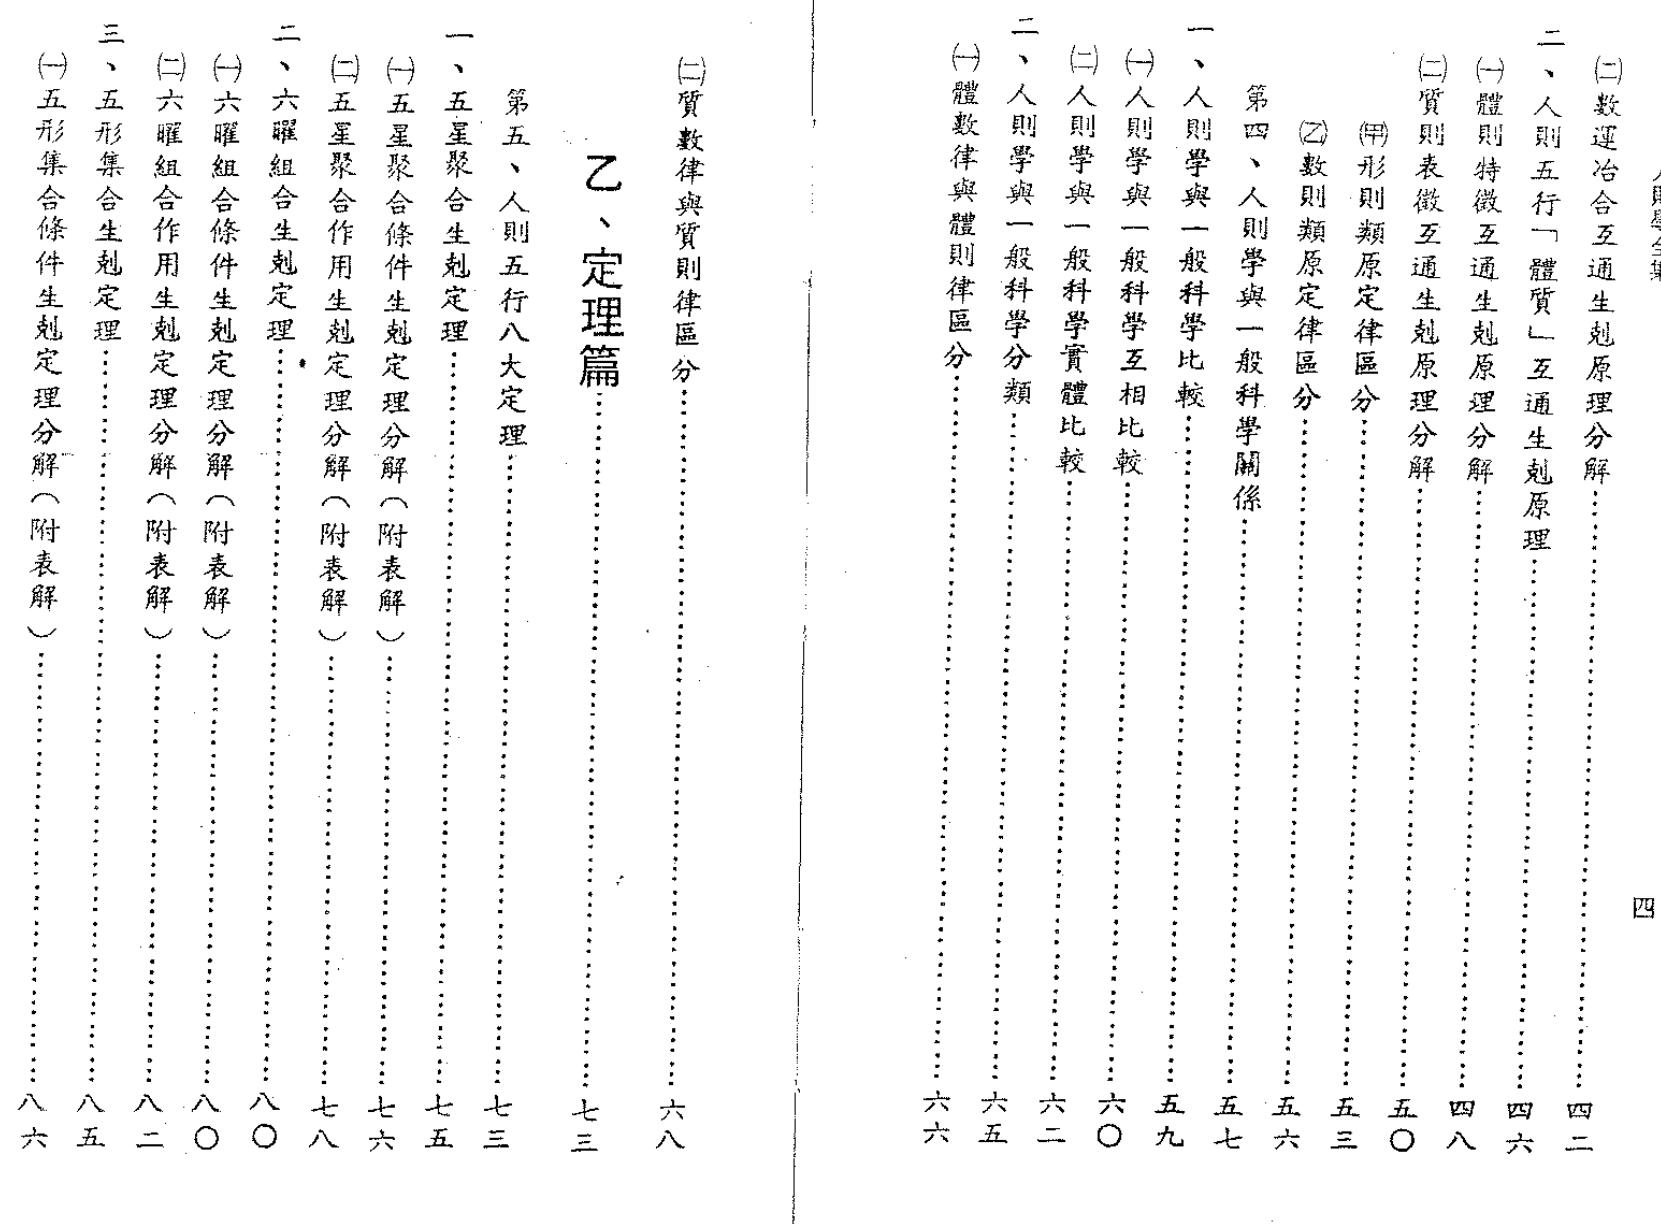 人則學全集
四
㈡數運冶合互通生剋原理分解⋯⋯四二
二、人則五行「體質」互通生剋原理⋯⋯四六
㈠體則特徵互通生剋原理分解⋯⋯四八
㈡質則表徵互通生剋原理分解⋯⋯五〇
㈙形則類原定律區分⋯⋯五三
㈚數則類原定律區分⋯⋯五六
第四、人則學與一般科學關係⋯⋯五七
一、人則學與一般科學比較⋯⋯五九
㈠人則學與一般科學互相比較⋯⋯六〇
㈡人則學與一般科學實體比較⋯⋯六二
二、人則學與一般科學分類⋯⋯六五
㈠體數律與體則律區分⋯⋯六六
㈡質數律與質則律區分⋯⋯六八
乙、定理篇⋯⋯七三
第五、人則五行八大定理⋯⋯七三
一、五星聚合生剋定理⋯⋯七五
㈠五星聚合條件生剋定理分解(附表解)⋯⋯七六
㈡五星聚合作用生剋定理分解(附表解)⋯⋯七八
二、六曜組合生剋定理⋯⋯八〇
㈠六曜組合條件生剋定理分解(附表解)⋯⋯八〇
㈡六曜組合作用生剋定理分解(附表解)⋯⋯八二
三、五形集合生剋定理⋯⋯八五
㈠五形集合條件生剋定理分解(附表解)⋯⋯八六